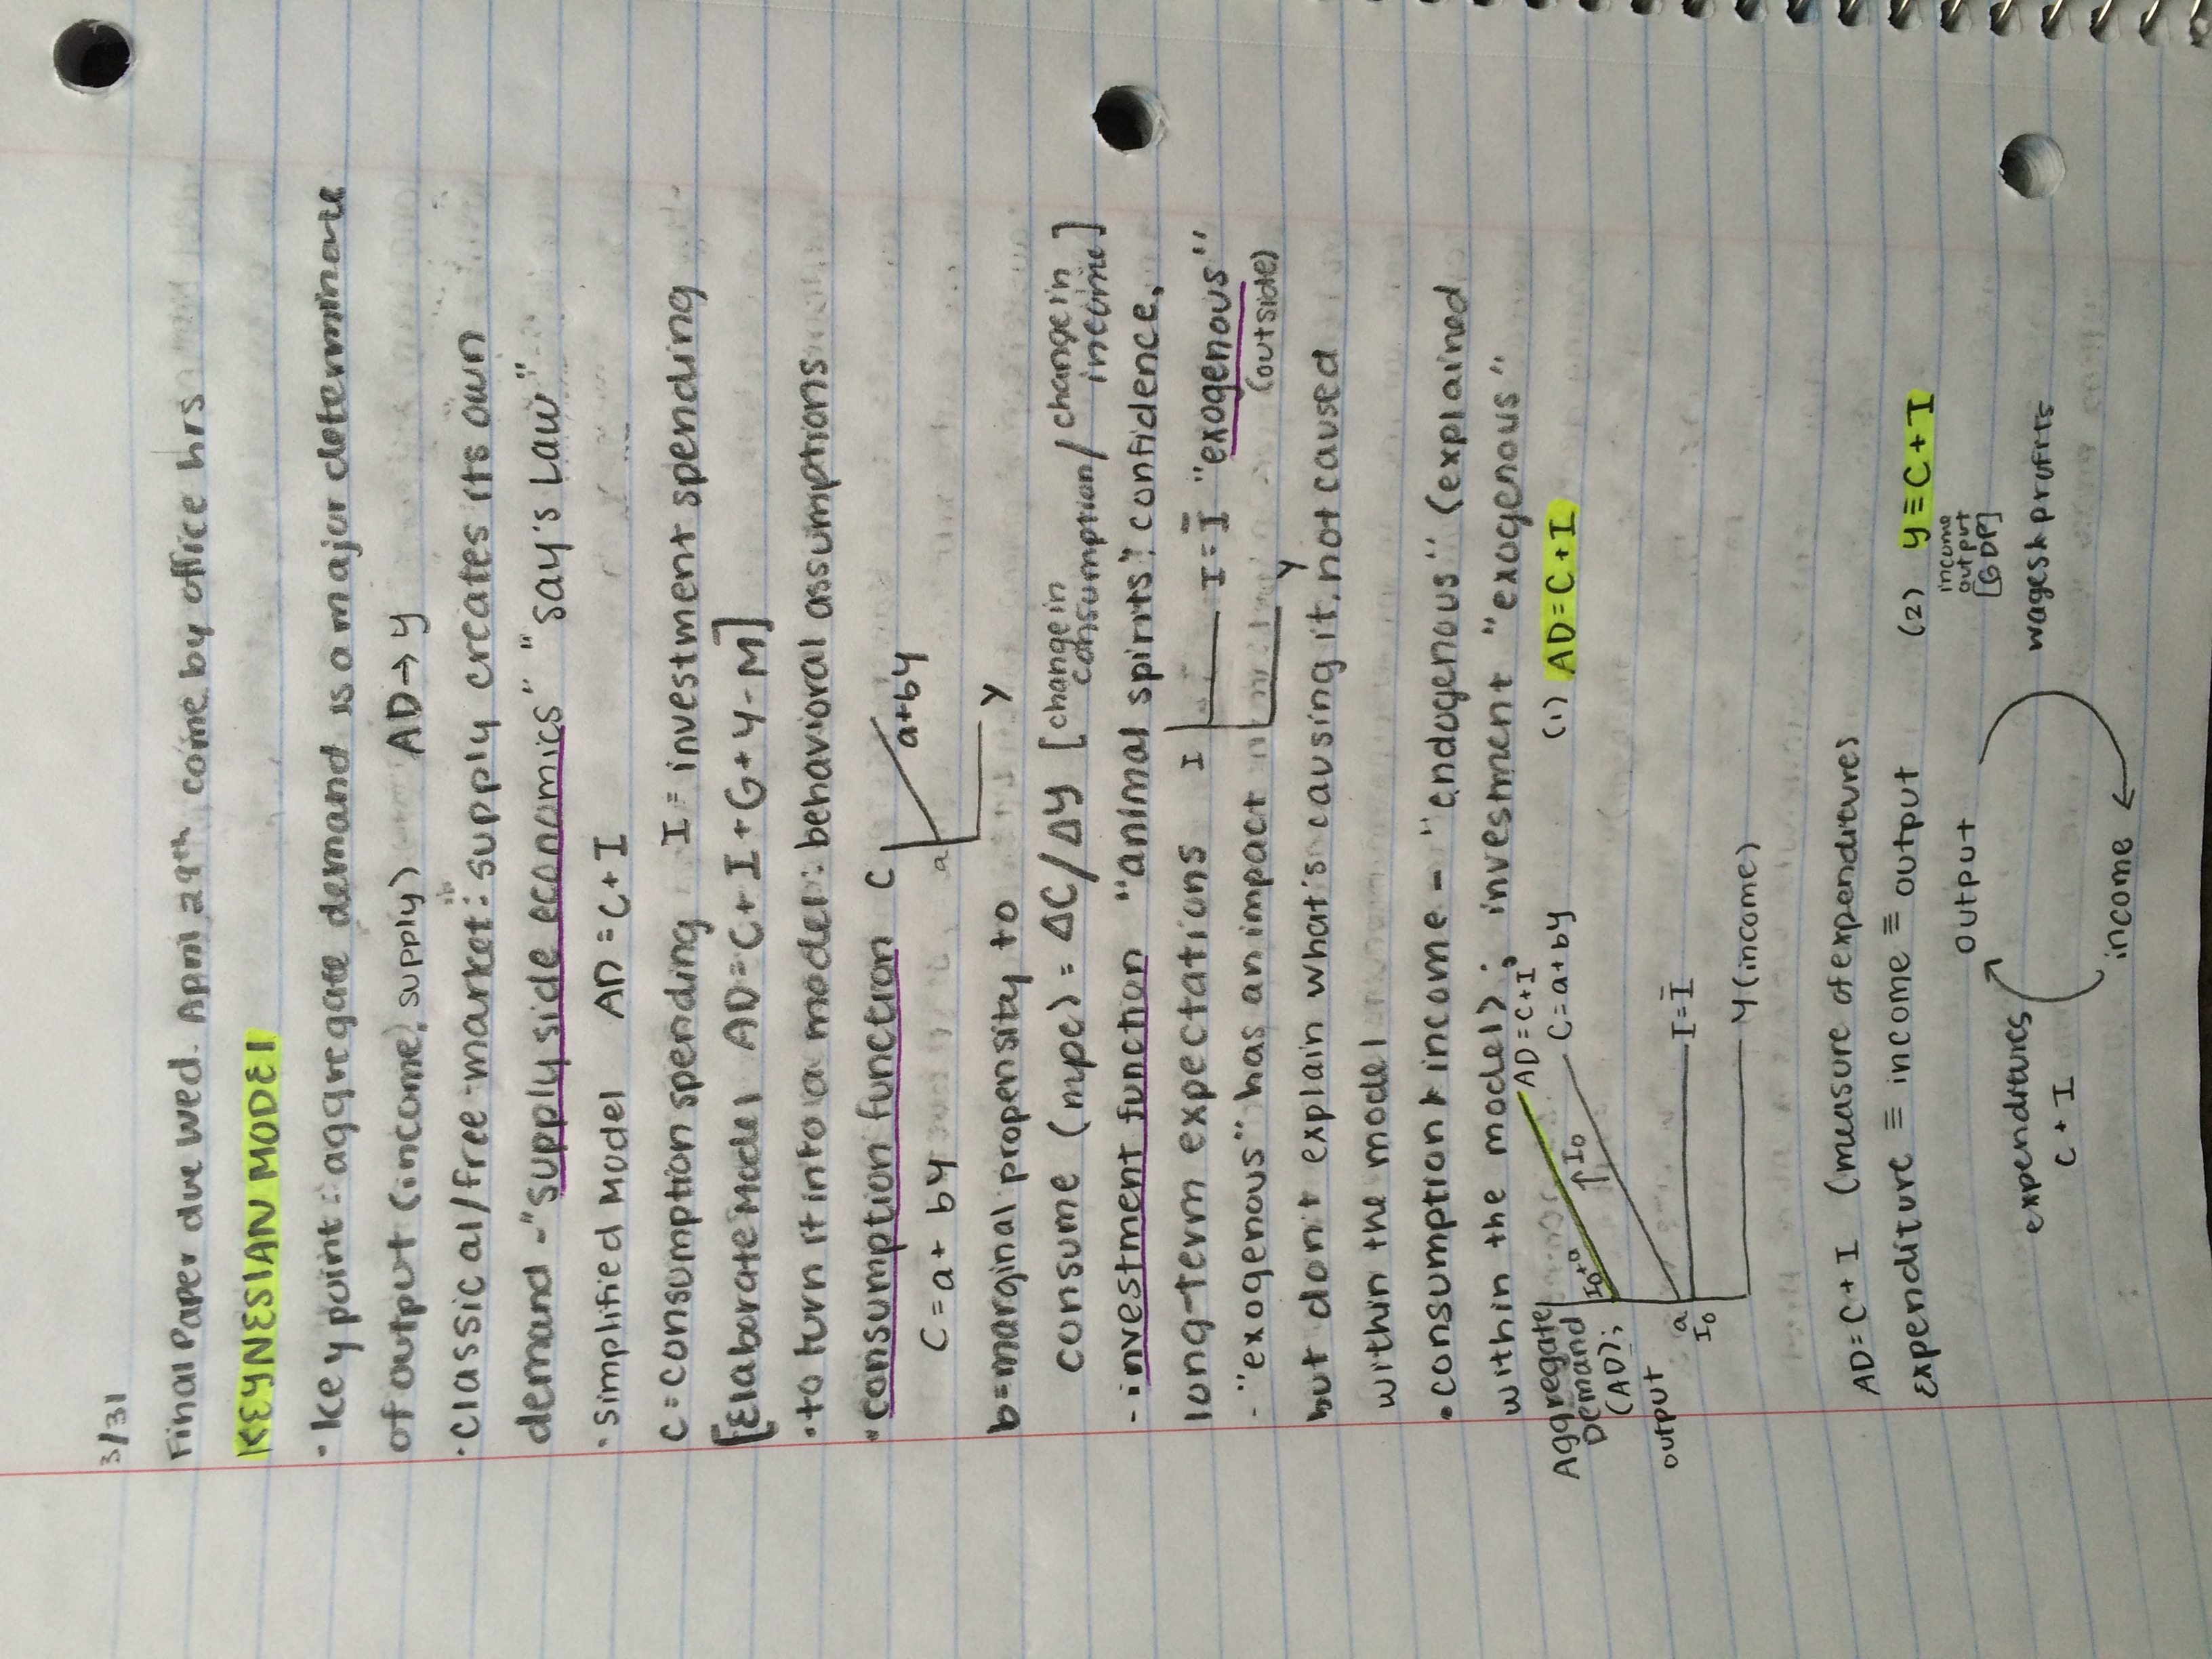 3/31
Final Paper due Wed. April 29th come by office hrs
KEYNESIAN MODEL
· Key point: aggregate demand is a major determinate
of output (income, supply) AD→Y
· classical/free-market: supply creates its own
demand - "supply side economics" "Say's Law"
· simplified model AD=C+I
C=consumption spending I=investment spending
[Elaborate Model AD=C+I+G+Y-M]
· to turn it into a model: behavioral assumptions
· consumption function C
a+by
a
Y
C=a+by
b=marginal propensity to
consume (mpc)=ΔC/ΔY [change in consumption/change in income]
- investment function "animal spirits": confidence,
long-term expectations I
I=Ī "exogenous"
Y
(outside)
- "exogenous" has an impact
but don't explain what's causing it, not caused
within the model
· consumption & income - "endogenous" (explained
within the model); investment "exogenous"
Aggregate
Demand
(AD);
output
I₀+a
↑I₀
AD=C+I
C=a+by
a
I₀
I=Ī
Y (income)
(1) AD=C+I
AD=C+I (measure of expenditures
expenditure ≡ income ≡ output
(2) Y≡C+I
income
output
[GDP]
output
expenditures
C+I
wages & profits
income